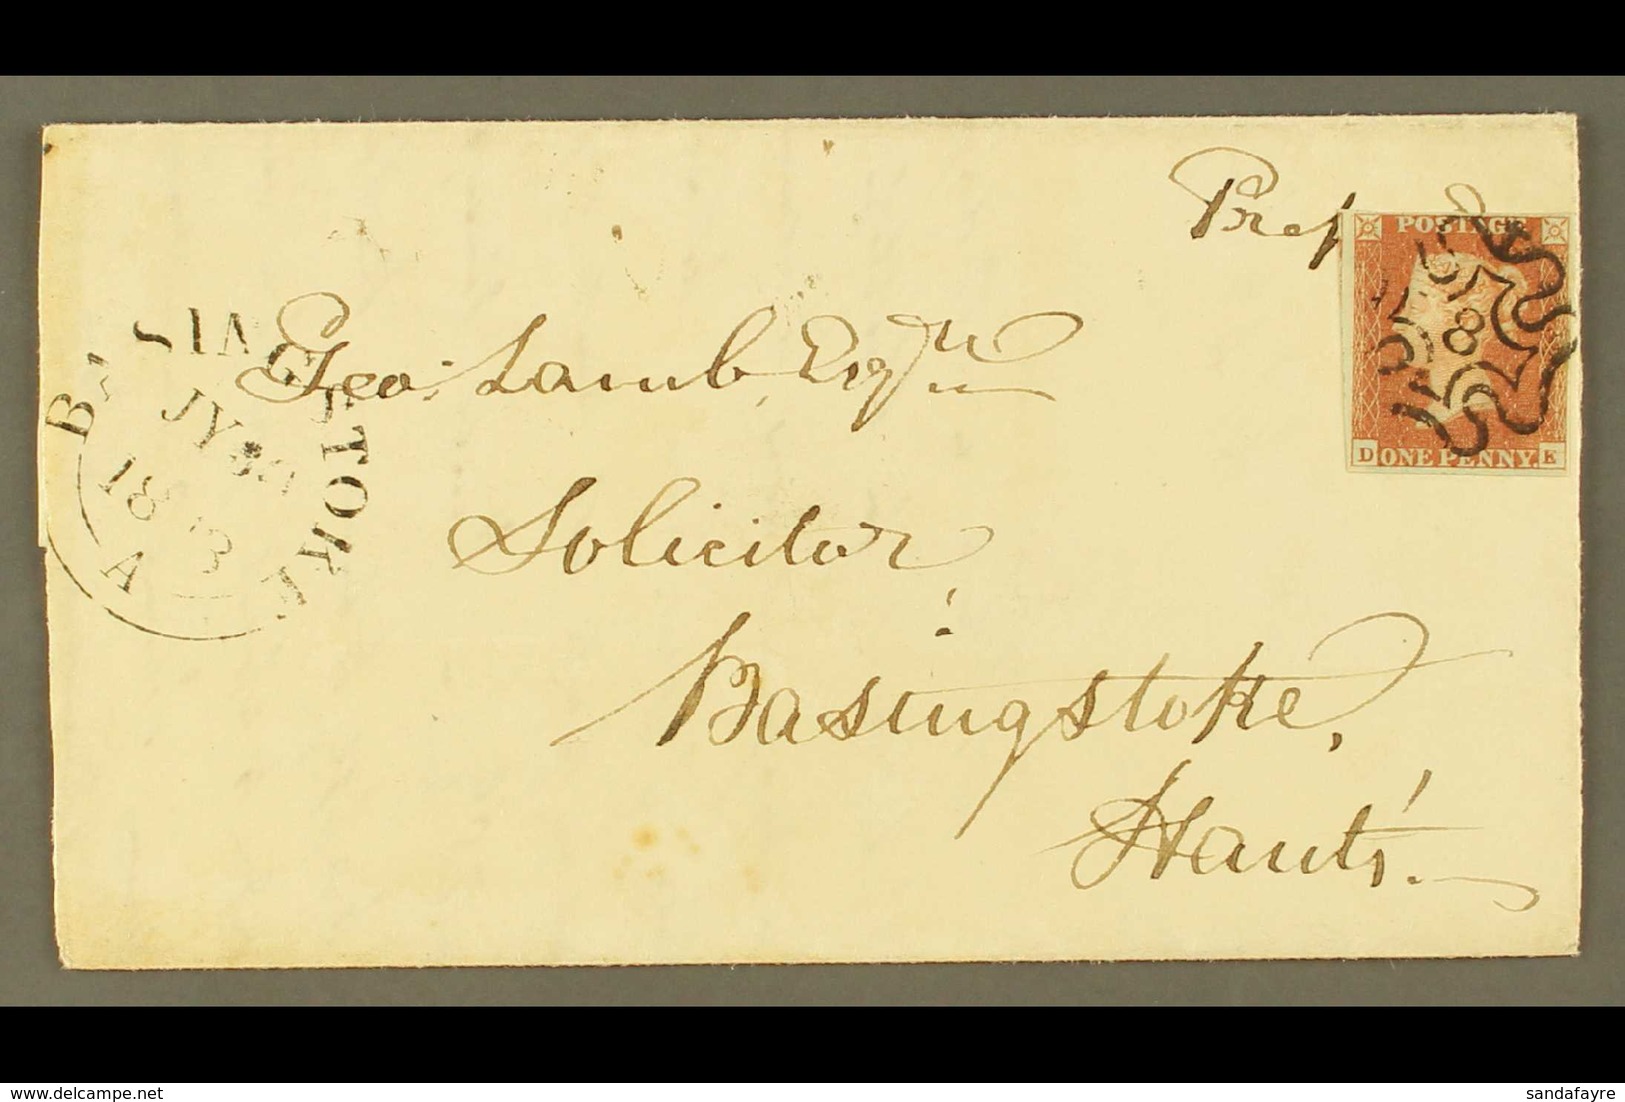 Prep
POSTAGE
8
D ONE PENNY. K
BASINGSTOKE
JY
1843
A
Geo: Lamb, Esqre
Solicitor
Basingstoke,
Hants.
delcampe.net
sandafayre